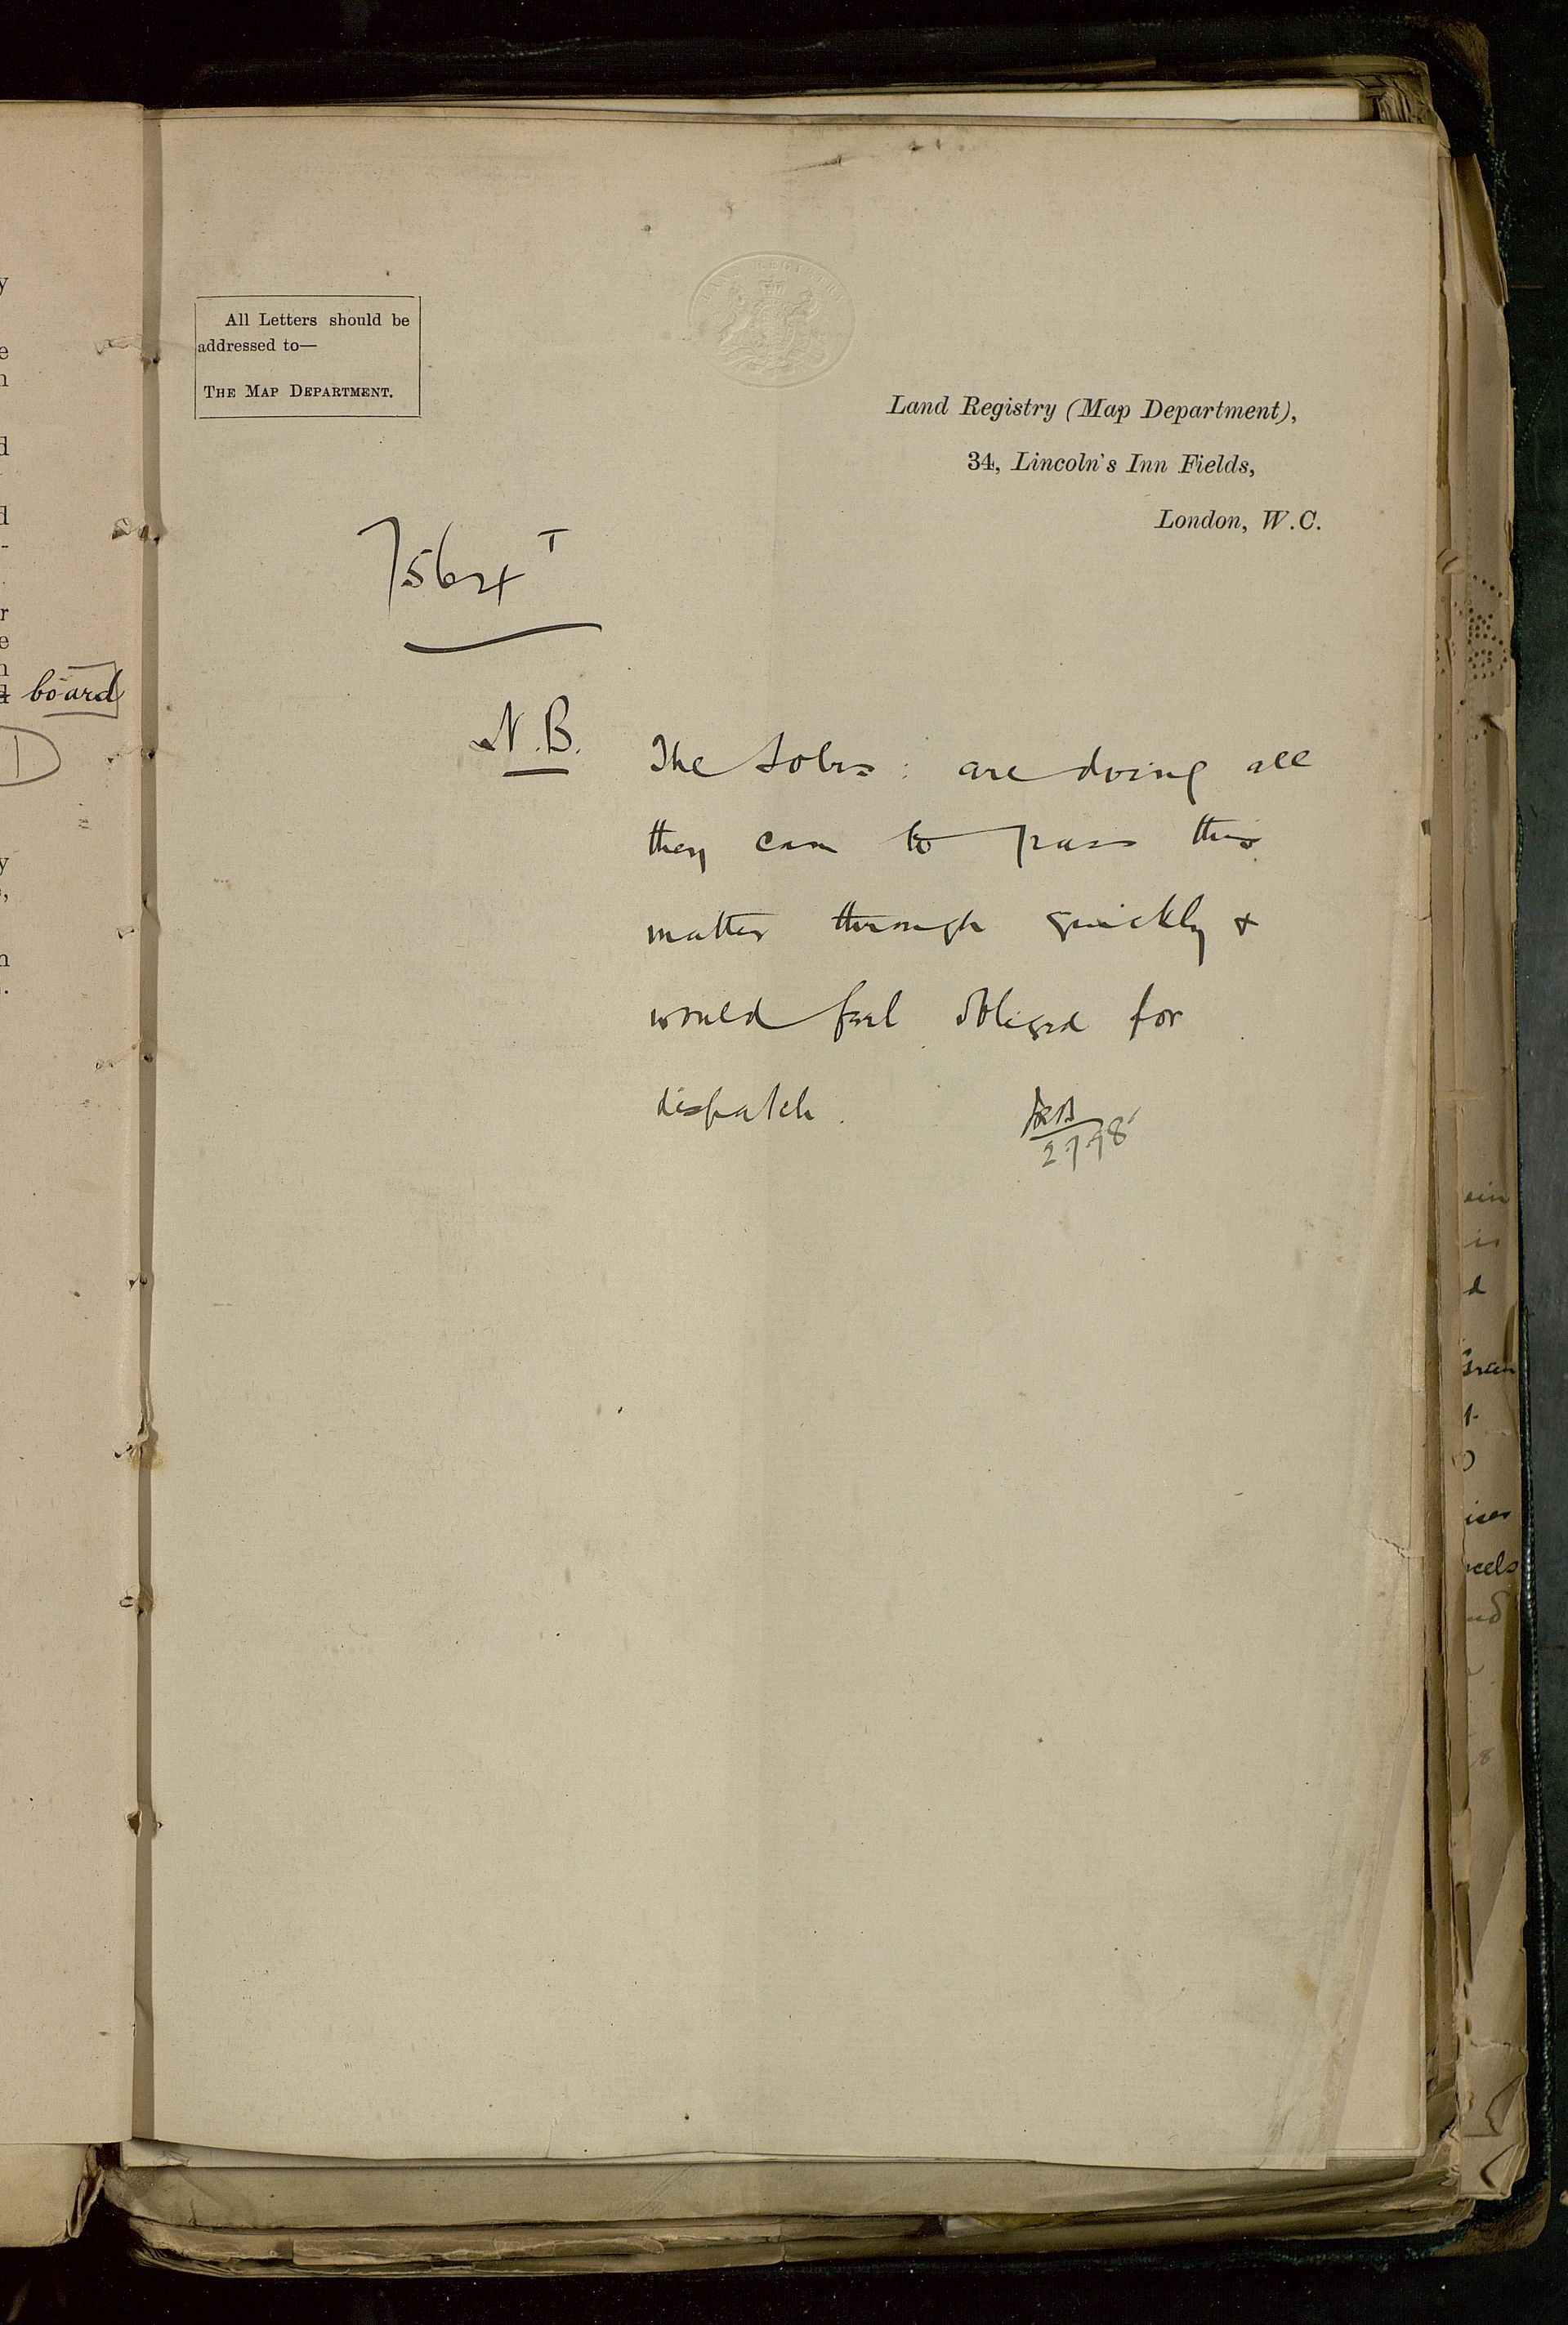 All Letters should be
addressed to—
THE MAP DEPARTMENT.
LAND REGISTRY
Land Registry (Map Department),
34, Lincoln's Inn Fields,
London, W.C.
N.B. The Solrs: are doing all
they can to pass this
matter through quickly +
would feel obliged for
dispatch.
board